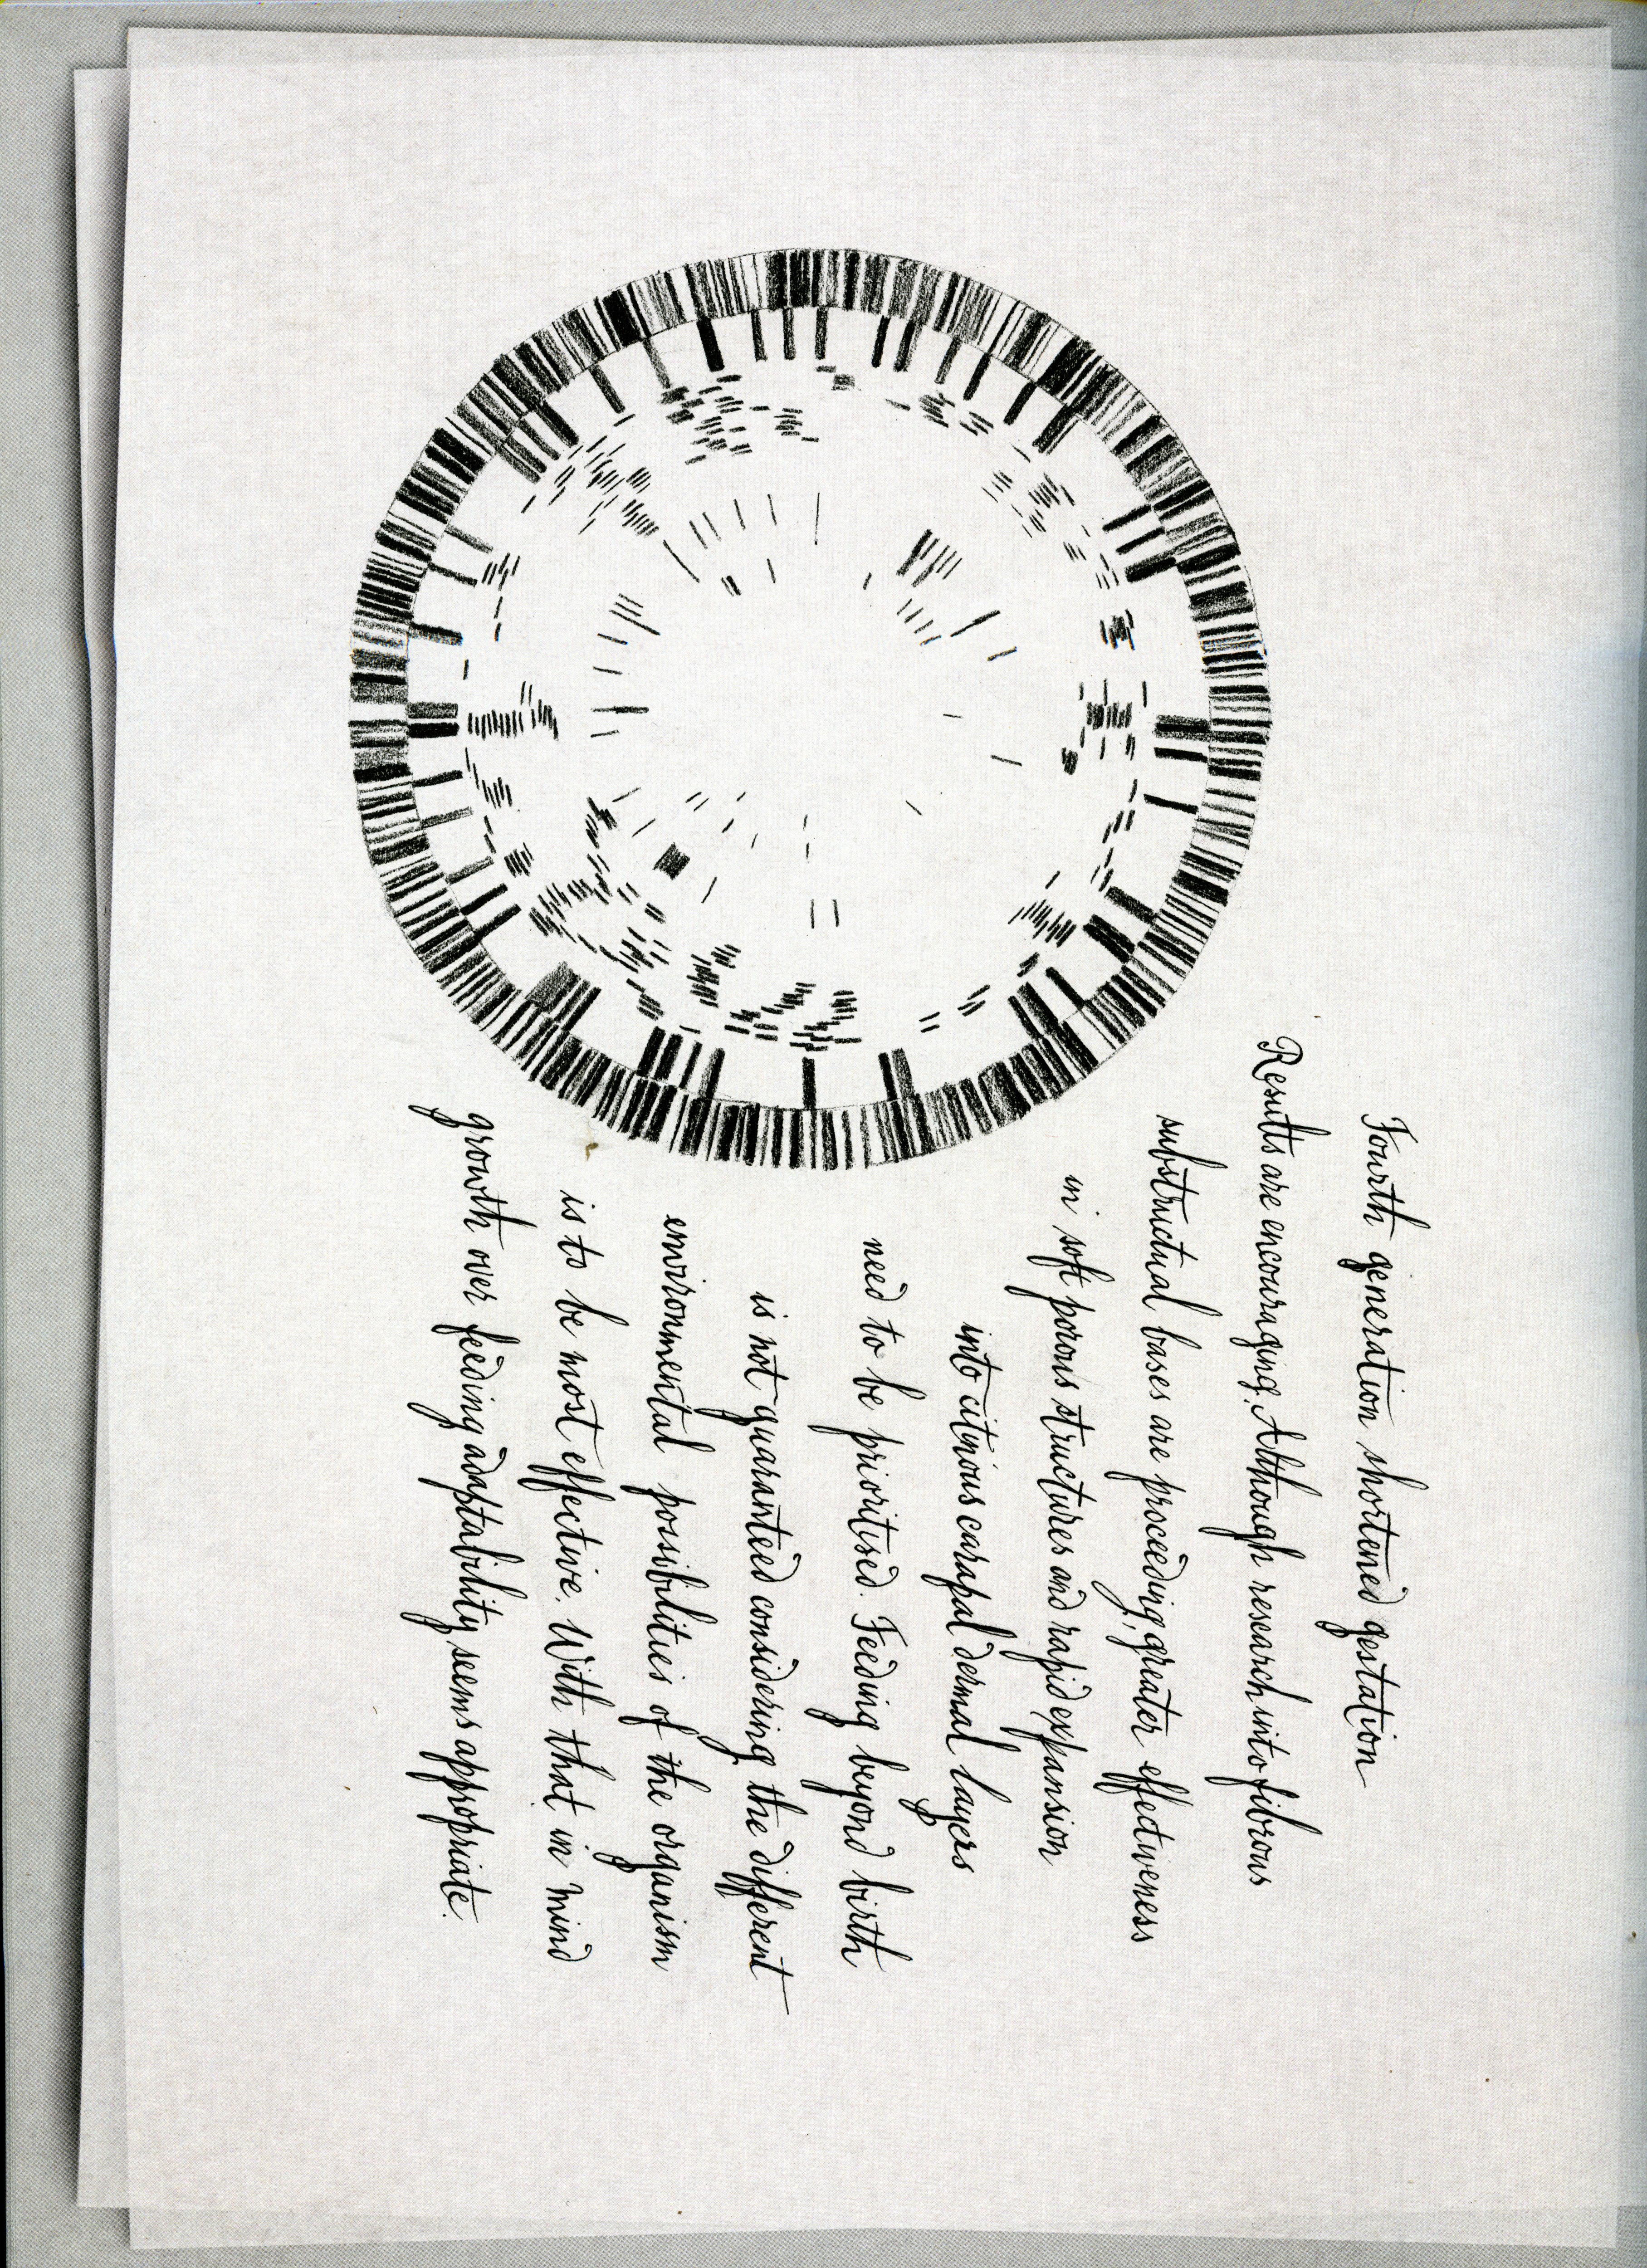 Fourth generation shortened gestation
Results are encouraging. Although research into fibrous
substructual bases are proceeding, greater effectiveness
in soft porous structures and rapid expansion
into citinous carapal dermal layers
need to be prioritised. Feeding beyond birth
is not guaranteed considering the different
environmental possibilities of the organism
is to be most effective. With that in mind
growth over feeding adaptability seems appropriate.